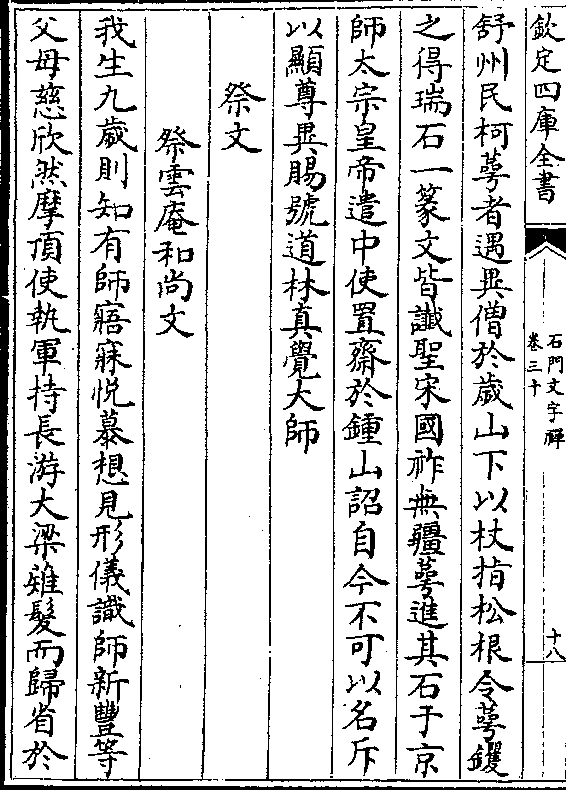 欽定四庫全書
石門文字禪
卷三十
十八
舒州民柯萼者遇異僧於歲山下以杖指松根令萼钁
之得瑞石一篆文皆讖聖宋國祚無疆萼進其石于京
師太宗皇帝遣中使置齋於鍾山詔自今不可以名斥
以顯尊異賜號道林真覺大師
祭文
祭雲庵和尚文
我生九歲則知有師寤寐悅慕想見形儀識師新豐等
父母慈欣然摩頂使執軍持長游大梁薙髮而歸省於